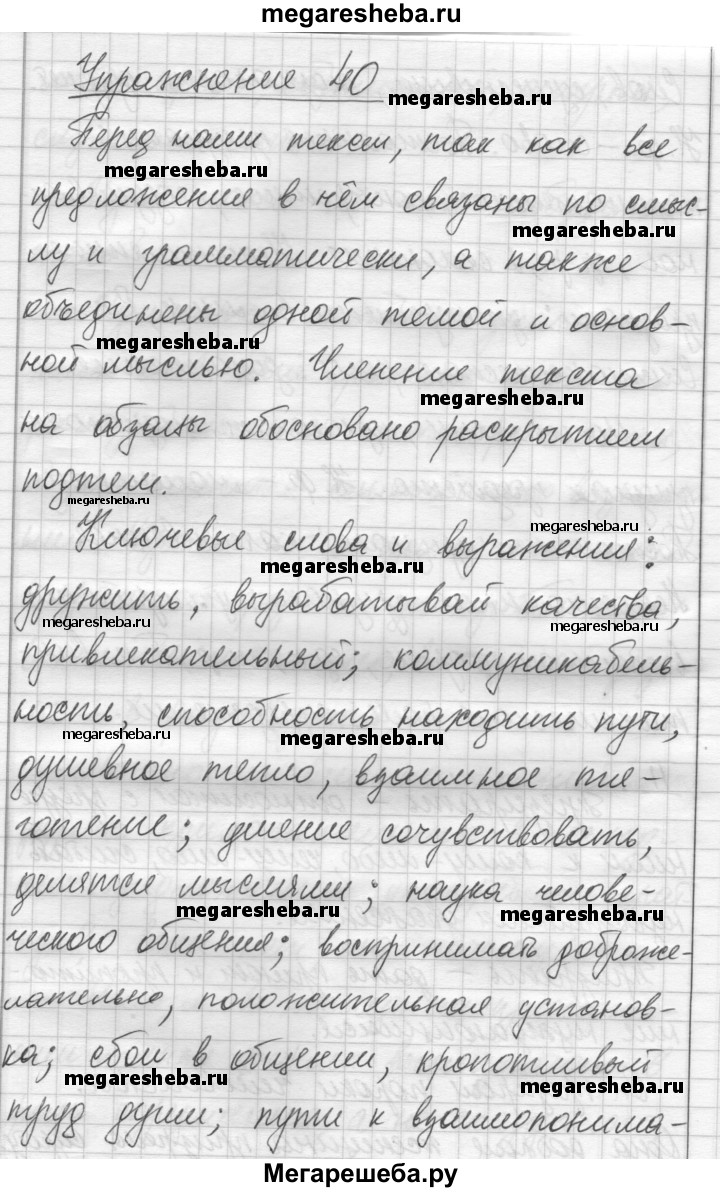 megaresheba.ru
Упражнение 40
megaresheba.ru
Перед нами текст, так как все
megaresheba.ru
предложения в нём связаны по смыс-
megaresheba.ru
лу и грамматически, а также
объединены одной темой и основ-
megaresheba.ru
ной мыслью. Членение текста
megaresheba.ru
на абзацы обосновано раскрытием
подтем.
megaresheba.ru
Ключевые слова и выражения:
megaresheba.ru
megaresheba.ru
дружить, вырабатывай качества,
megaresheba.ru
megaresheba.ru
привлекательный; коммуникабель-
ность, способность находить пути,
megaresheba.ru
megaresheba.ru
душевное тепло, взаимное тя-
готение; умение сочувствовать,
делятся мыслями; наука челове-
megaresheba.ru
megaresheba.ru
ческого общения; воспринимать доброже-
лательно, положительная установ-
ка; сбои в общении, кропотливый
megaresheba.ru
megaresheba.ru
труд души; пути к взаимопонима-
Мегарешеба.ру